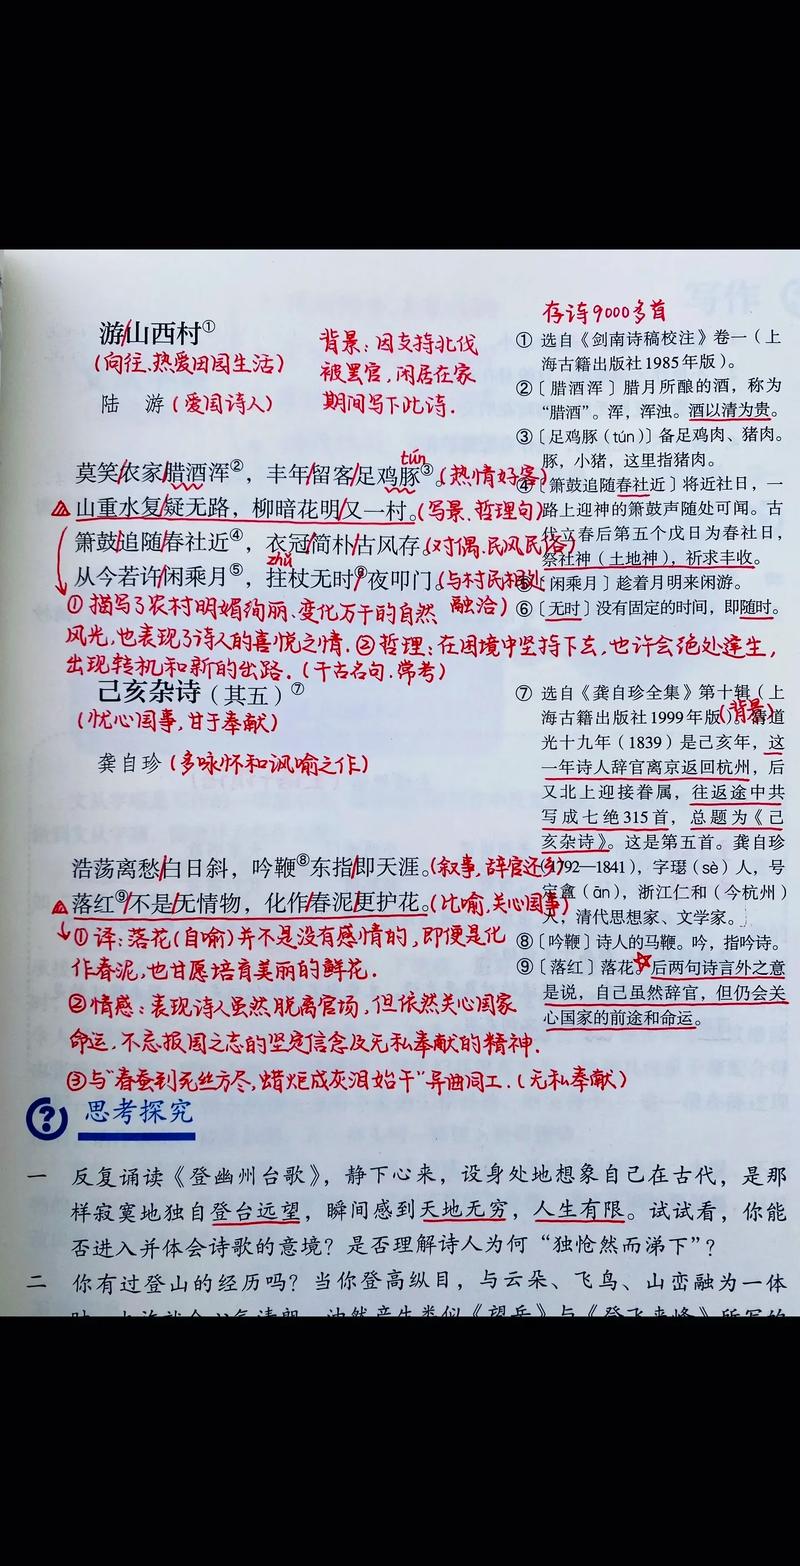 存诗9000多首
游/山西村①
(向往、热爱田园生活)
陆 游(爱国诗人)
背景：因支持北伐
被罢官，闲居在家
期间写下此诗.
tún
莫笑/农家/腊酒浑②，丰年/留客/足鸡豚③。(热情好客)
山重水复/疑无路，柳暗花明/又一村。(写景、哲理句)
箫鼓/追随/春社近④，衣冠/简朴/古风存。(对偶、民风民俗)
zhǔ
从今若许/闲乘月⑤，拄杖无时/⑥夜叩门。(与村民相处
融洽)
①描写了农村明媚绚丽、变化万千的自然
风光，也表现了诗人的喜悦之情.②哲理：在困境中坚持下去，也许会绝处逢生，
出现转机和新的出路.(千古名句.常考)
① 选自《剑南诗稿校注》卷一（上
海古籍出版社1985年版）。
②〔腊酒浑〕腊月所酿的酒，称为
“腊酒”。浑，浑浊。酒以清为贵。
③〔足鸡豚（tún）〕备足鸡肉、猪肉。
豚，小猪，这里指猪肉。
④〔箫鼓追随春社近〕将近社日，一
路上迎神的箫鼓声随处可闻。古
代立春后第五个戊日为春社日，
祭社神（土地神），祈求丰收。
⑤〔闲乘月〕趁着月明来闲游。
⑥〔无时〕没有固定的时间，即随时。
己亥杂诗（其五）⑦
(忧心国事，甘于奉献)
龚自珍(多咏怀和讽喻之作)
浩荡离愁/白日斜，吟鞭⑧东指/即天涯。(叙事，辞官还乡)
落红⑨/不是/无情物，化作/春泥/更护花。(比喻，关心国事)
①译：落花(自喻)并不是没有感情的，即便是化
作春泥，也甘愿培育美丽的鲜花.
②情感：表现诗人虽然脱离官场，但依然关心国家
命运，不忘报国之志的坚定信念及无私奉献的精神.
③与“春蚕到死丝方尽，蜡炬成灰泪始干”异曲同工.(无私奉献)
⑦ 选自《龚自珍全集》第十辑（上
(背景)
海古籍出版社1999年版）。清道
光十九年（1839）是己亥年，这
一年诗人辞官离京返回杭州，后
又北上迎接眷属，往返途中共
写成七绝315首，总题为《己
亥杂诗》。这是第五首。龚自珍
（1792—1841），字璱（sè）人，号
定盦（ān），浙江仁和（今杭州）
人，清代思想家、文学家。
⑧〔吟鞭〕诗人的马鞭。吟，指吟诗。
⑨〔落红〕落花。后两句诗言外之意
是说，自己虽然辞官，但仍会关
心国家的前途和命运。
思考探究
一 反复诵读《登幽州台歌》，静下心来，设身处地想象自己在古代，是那
样寂寞地独自登台远望，瞬间感到天地无穷，人生有限。试试看，你能
否进入并体会诗歌的意境？是否理解诗人为何“独怆然而涕下”？
二 你有过登山的经历吗？当你登高纵目，与云朵、飞鸟、山峦融为一体